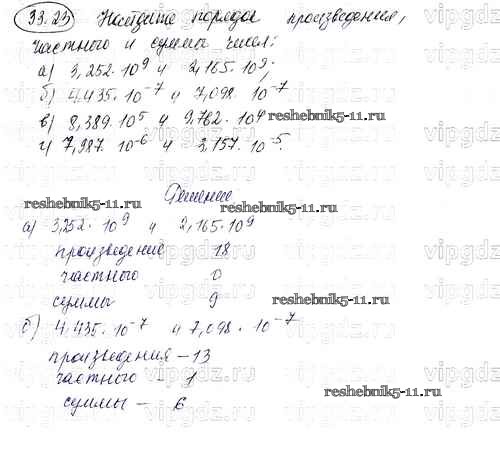 33.25) Найдите порядок произведения,
частного и суммы чисел:
а) 3,252·10^9 и 2,165·10^9;
б) 4,435·10^-7 и 7,098·10^-7
в) 8,389·10^5 и 9,762·10^4
г) 7,987·10^-6 и 3,157·10^-5.
reshebnik5-11.ru
Решение
reshebnik5-11.ru
а) 3,252·10^9 и 2,165·10^9
произведение 18
частного 0
суммы 9
reshebnik5-11.ru
б) 4,435·10^-7 и 7,098·10^-7
произведения –13
частного – 1
reshebnik5-11.ru
суммы – 6
vipgdz.ru